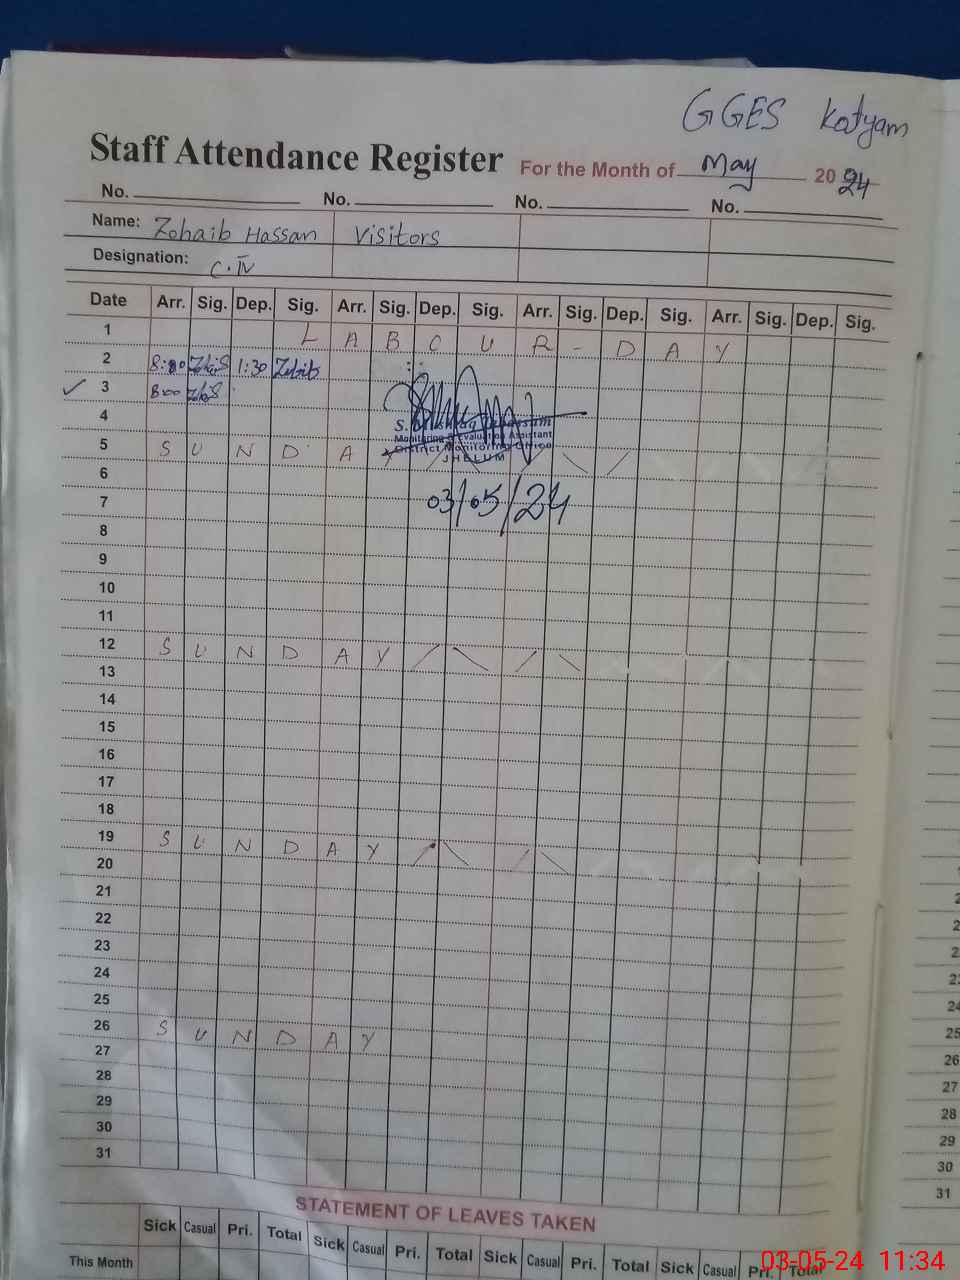 GGES Katyam
Staff Attendance Register For the Month of May 2024
No. No. No. No.
Name: Zohaib Hassan Visitors
Designation: C.IV
Date Arr. Sig. Dep. Sig. Arr. Sig. Dep. Sig. Arr. Sig. Dep. Sig. Arr. Sig. Dep. Sig.
1 L A B O U R - D A Y
2 8:00 Zohaib 1:30 Zohaib
3 8:00 Zohaib
4
Monitoring & Evaluation Assistant
District Monitoring Office
JHELUM
5 S U N D A Y
6
7 03/05/24
8
9
10
11
12 S U N D A Y
13
14
15
16
17
18
19 S U N D A Y
20
21
22
23
24
25
26 S U N D A Y
27
28
29
30
31
STATEMENT OF LEAVES TAKEN
Sick Casual Pri. Total Sick Casual Pri. Total Sick Casual Pri. Total Sick Casual Pri. Total
This Month
03-05-24 11:34